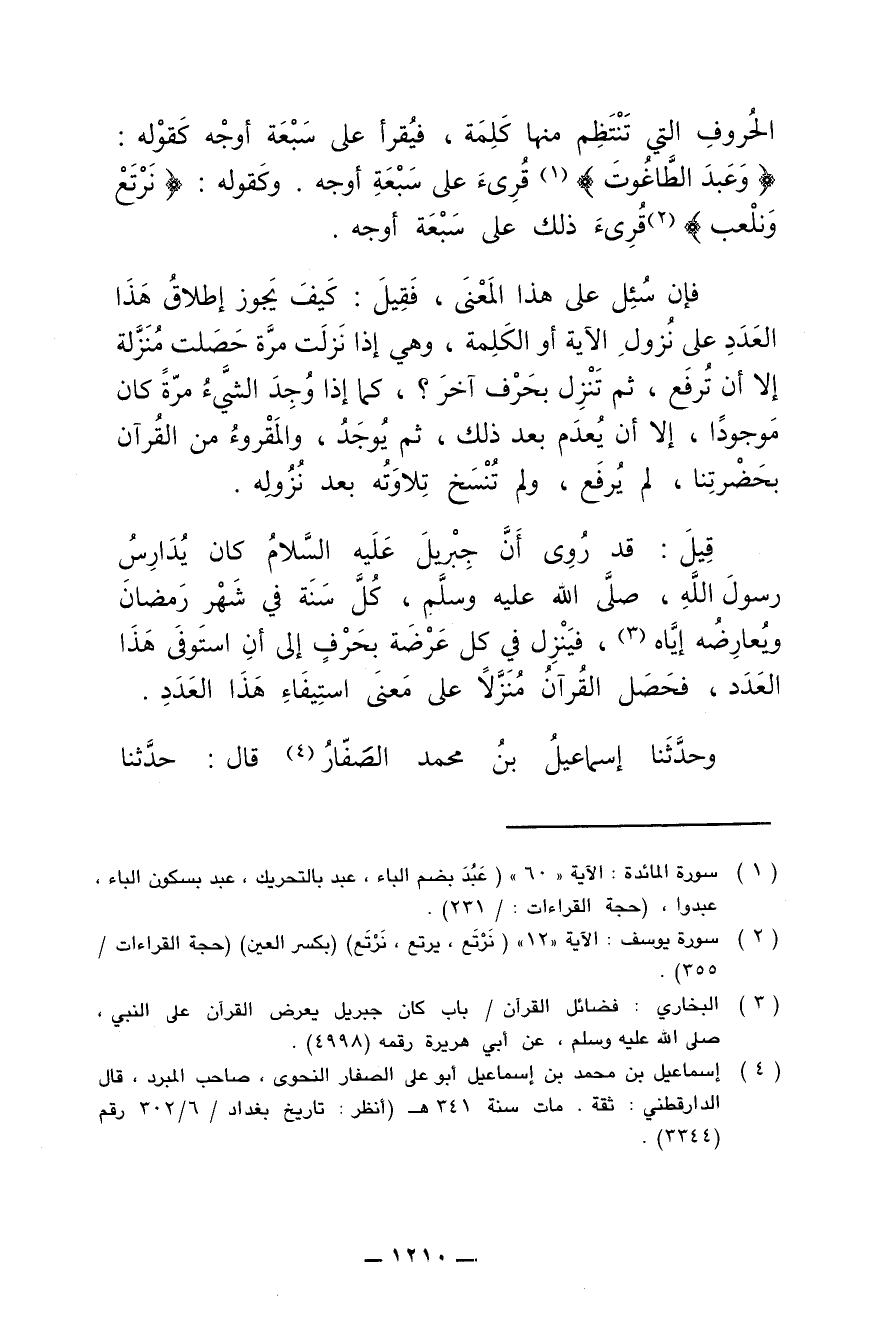 الحُروفِ التي تَنْتَظِم منها كَلِمَة ، فيُقرأ على سَبْعَة أوجْه كَقوْله :
﴿ وَعَبدَ الطَّاغُوتَ ﴾ (١) قُرِىءَ على سَبْعَةِ أوجه . وكَقوله : ﴿ نَرْتَعْ
وَنلْعب ﴾ (٢)قُرِىءَ ذلك على سَبْعَة أوجه .
فإن سُئِل على هذا المَعْنىَ ، فَقِيلَ : كَيفَ يَجوز إطلاقُ هَذَا
العَدَدِ على نُزول الآية أو الكَلِمة ، وهي إذا نَزلَت مرَّة حَصَلت مُنَزَّلة
إلا أن تُرفَع ، ثم تَنْزِل بحَرْف آخرَ ؟ ، كما إذا وُجِدَ الشَّيءُ مرّةً كان
مَوجودًا ، إلا أن يُعدَم بعد ذلك ، ثم يُوجَدُ ، والمَقْروءُ من القُرآن
بحَضْرتِنا ، لم يُرفَع ، ولم تُنْسَخ تِلاوَتُه بعد نُزُولِه .
قِيلَ : قد رُوِى أَنَّ جِبْريلَ عَلَيه السَّلامُ كان يُدَارِسُ
رسولَ اللَّهِ ، صلَّى الله عليه وسلَّم ، كُلَّ سَنَة في شَهْر رَمضانَ
ويُعارِضُه إيَّاه (٣) ، فيَنْزِل في كل عَرْضَة بحَرْفٍ إلى أنِ استَوفَى هَذَا
العَدَد ، فحَصَل القُرآنُ مُنَزَّلاً على مَعنىَ استِيفَاءِ هَذَا العَدَدِ .
وحدَّثَنا إسماعيلُ بنُ محمد الصَفّارُ (٤) قال : حدَّثنا
(١) سورة المائدة : الآية « ٦٠ » ( عَبُدَ بضم الباء ، عبد بالتحريك ، عبد بسكون الباء ،
عبدوا ، (حجة القراءات : / ٢٣١) .
(٢) سورة يوسف : الآية «١٢» ( نَرْتَع ، يرتع ، نَرْتَع) (بكسر العين) (حجة القراءات /
٣٥٥) .
(٣) البخاري : فضائل القرآن / باب كان جبريل يعرض القرآن على النبي ،
صلى الله عليه وسلم ، عن أبي هريرة رقمه (٤٩٩٨) .
(٤) إسماعيل بن محمد بن إسماعيل أبو على الصفار النحوى ، صاحب المبرد ، قال
الدارقطني : ثقة . مات سنة ٣٤١ هـ (أنظر : تاريخ بغداد / ٣٠٢/٦ رقم
(٣٣٤٤) .
ـ ١٢١٠ ـ